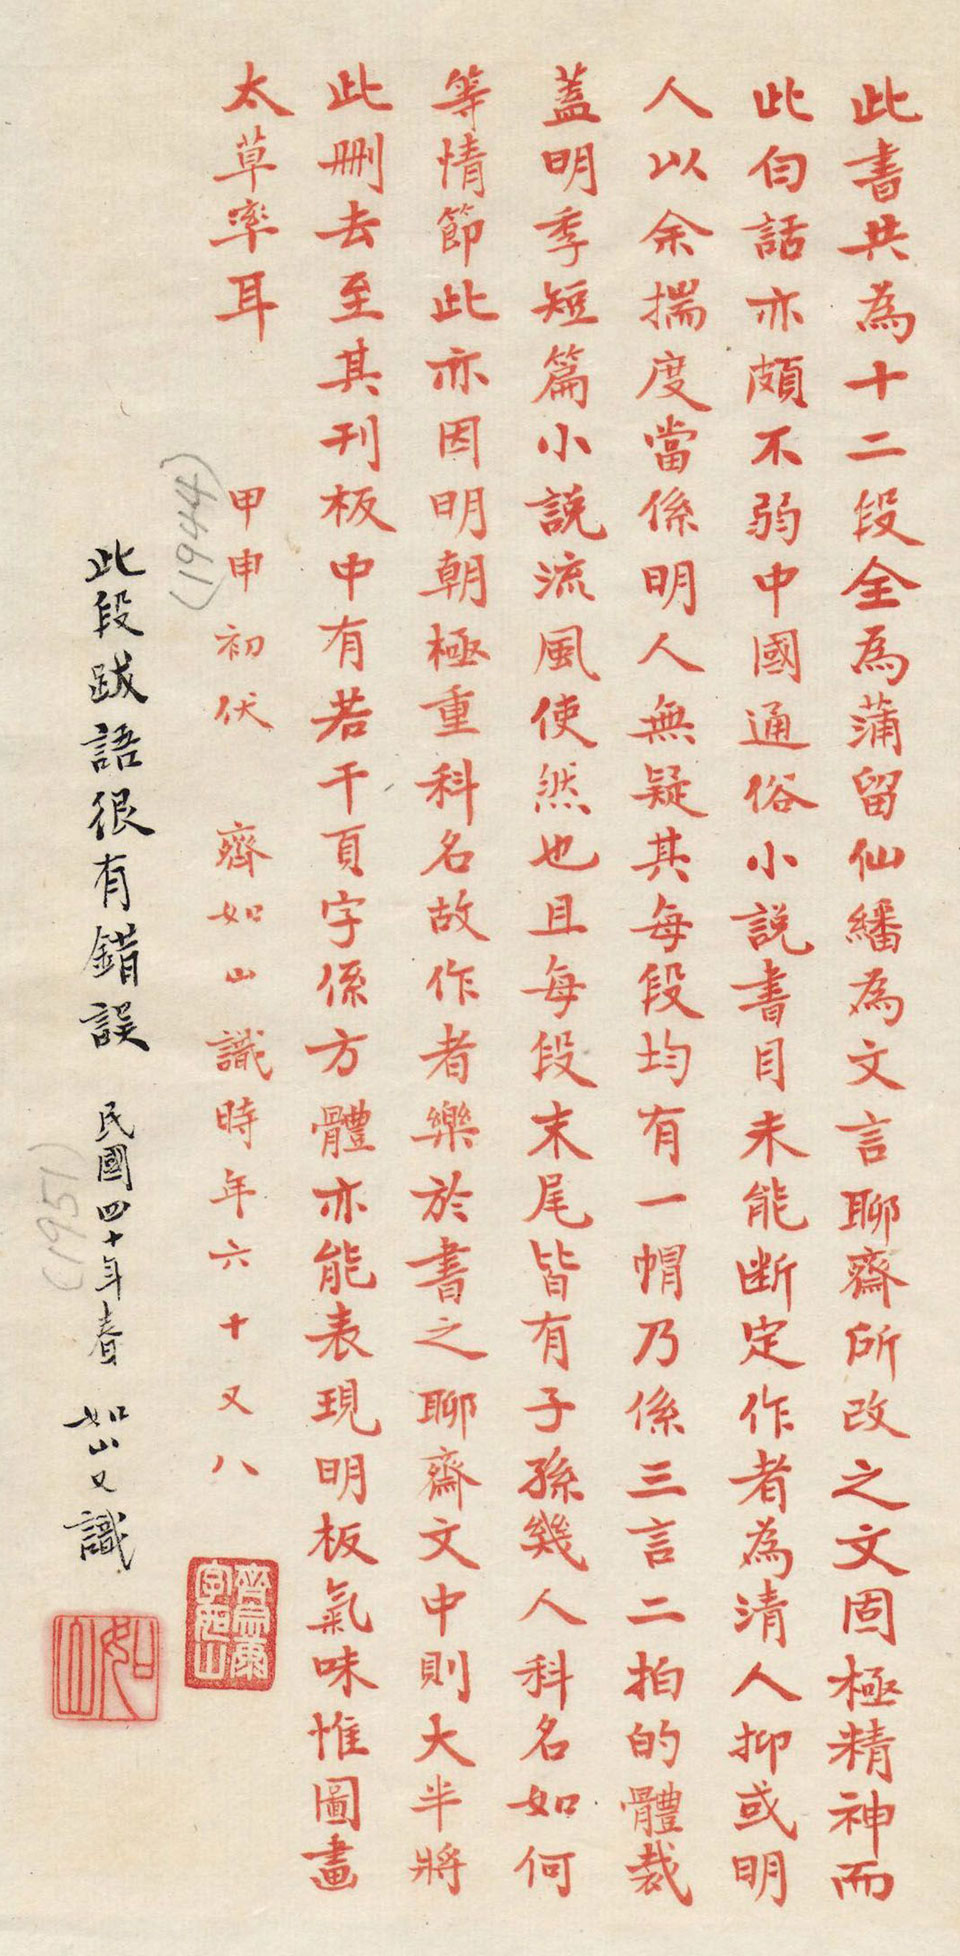 此書共為十二段全為蒲留仙繙為文言聊齋所改之文固極精神而
此白話亦頗不弱中國通俗小說書目未能斷定作者為清人抑或明
人以余揣度當係明人無疑其每段均有一帽乃係三言二拍的體裁
蓋明季短篇小說流風使然也且每段末尾皆有子孫幾人科名如何
等情節此亦因明朝極重科名故作者樂於書之聊齋文中則大半將
此刪去至其刊板中有若干頁字係方體亦能表現明板氣味惟圖畫
太草率耳
甲申初伏 齊如山識時年六十又八
(1944)
齊宗康字如山
此段跋語很有錯誤 民國四十年春 如山又識
(1951)
如山